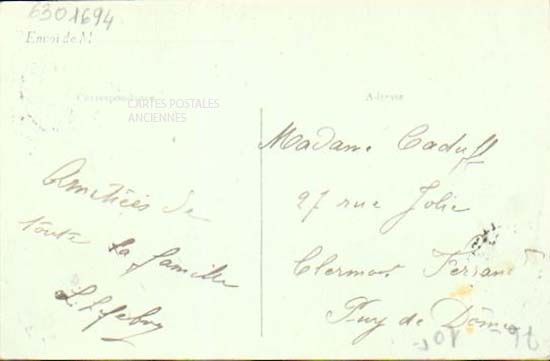 6301694
Envoi de M
Correspondance
CARTES POSTALES
ANCIENNES
Adresse
Amitiées de
toute la famille
L. Lefebvre
Madame Caduff
27 rue Jolie
Clermont Ferrand
Puy de Dôme